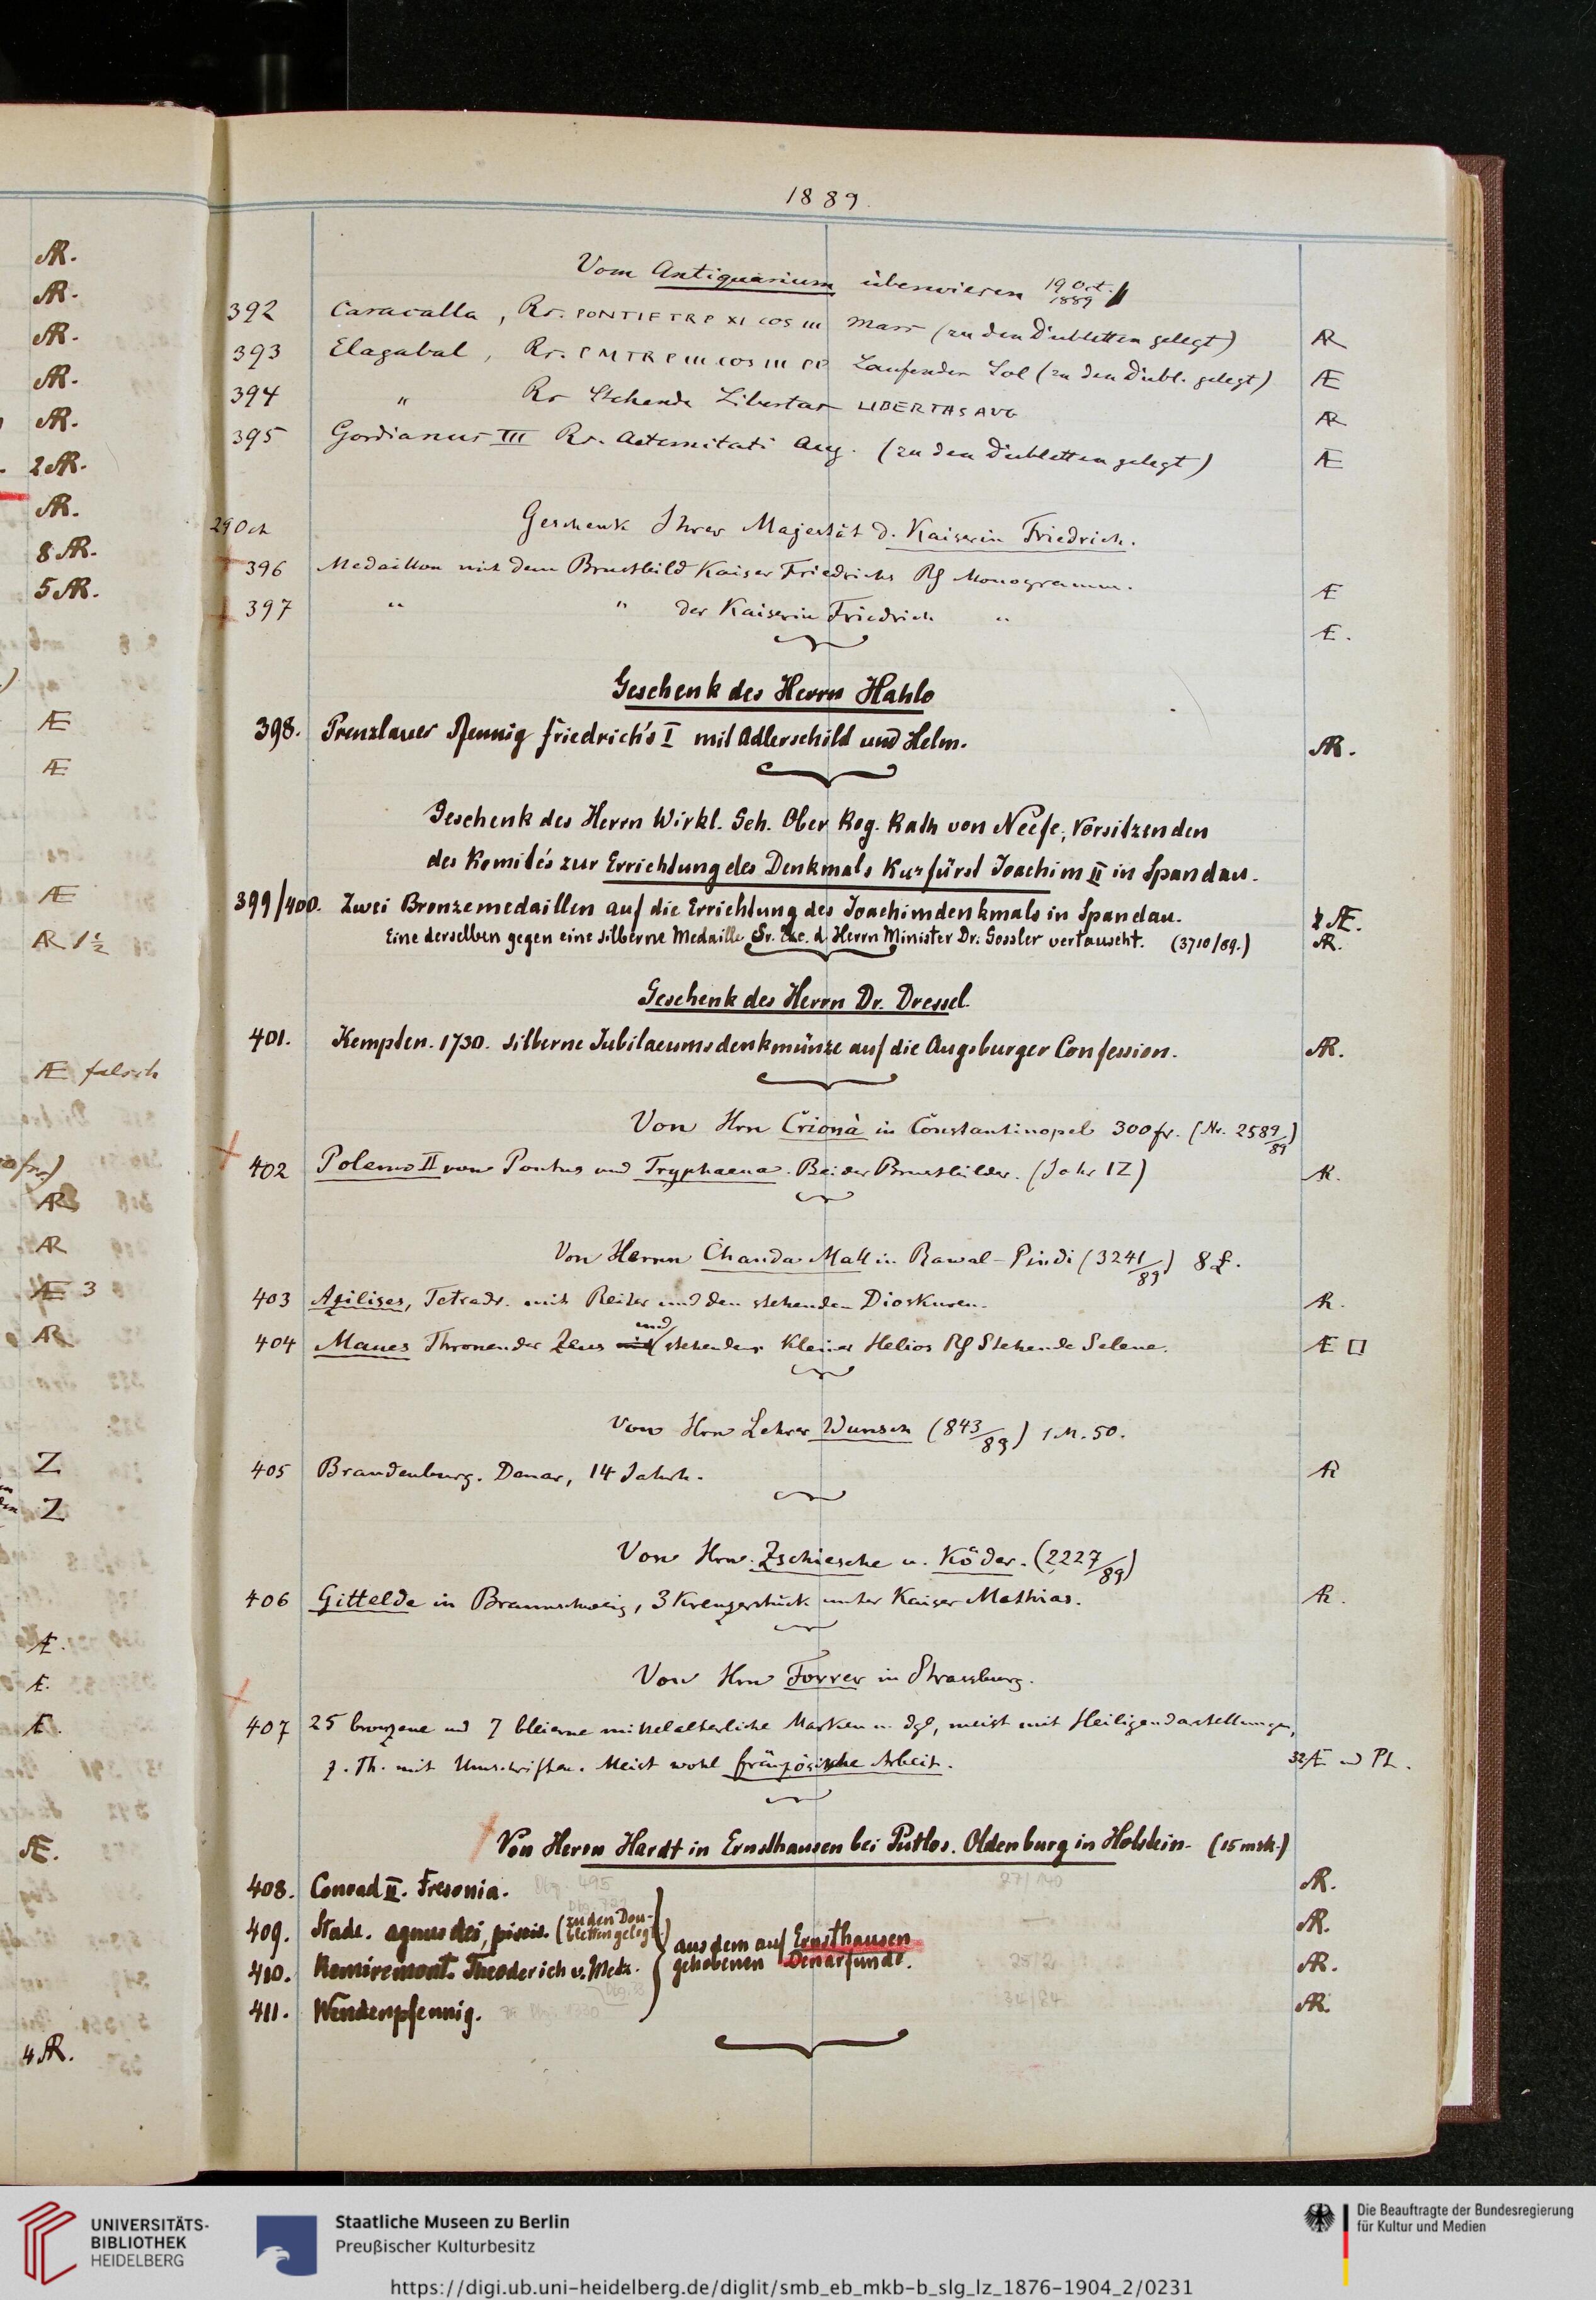 1889.
Vom Antiquarium überwiesen 19 Oct. 1889
392 Caracalla, Rs. PONTIF TR P XI COS III Mars (zu den Dubletten gelegt) AR
393 Elagabal, Rs. P M TR P III COS III P P Laufender Sol (zu den Dubl. gelegt) Æ
394 " Rs Stehende Libertas LIBERTAS AVG AR
395 Gordianus III Rs. Aeternitati Aug. (zu den Dubletten gelegt) Æ
29 Oct
Geschenk Ihrer Majestät d. Kaiserin Friedrich.
396 Medaillon mit dem Brustbild Kaiser Friedrichs Rf Monogramm. Æ
397 " " der Kaiserin Friedrich " Æ.
Geschenk des Herrn Hahlo
398. Prenzlauer Pfennig Friedrich's I mit Adlerschild und Helm. AR.
Geschenk des Herrn Wirkl. Geh. Ober Reg. Rath von Neefe, Vorsitzenden
des Komités zur Errichtung des Denkmals Kurfürst Joachim II in Spandau.
399/400. Zwei Bronzemedaillen auf die Errichtung des Joachimdenkmals in Spandau. 2 Æ.
Eine derselben gegen eine silberne Medaille Sr. Exc. d. Herrn Minister Dr. Gossler vertauscht. (3710/89.) AR.
Geschenk des Herrn Dr. Dressel.
401. Kempten. 1730. silberne Jubilaeumsdenkmünze auf die Augsburger Confession. AR.
Von Hrn Crionà in Constantinopel 300 fr. (Nr. 2589/89)
402 Polemo II von Pontus und Tryphaena. Beider Brustbilder. (Jahr IZ) AR.
Von Herrn Chanda Mall in Rawal-Pindi (3241/89) 8 £.
403 Azilises, Tetradr. mit Reiter und den stehenden Dioskuren. AR.
404 Maues Thronender Zeus und stehender kleiner Helios Rf Stehende Selene. Æ □
Von Hrn Lehrer Wunsch (843/89) 1 M. 50.
405 Brandenburg. Denar, 14 Jahrh. AR
Von Hrn. Zschiesche u. Köder. (2227/89)
406 Gittelde in Braunschweig, 3 Kreuzerstück unter Kaiser Mathias. AR.
Von Hrn Forrer in Strassburg.
407 25 bronzene und 7 bleierne mittelalterliche Marken u. dgl, meist mit Heiligendarstellungen,
z. Th. mit Umschriften. Meist wohl französische Arbeit. 32 Æ und Pb.
Von Herrn Hardt in Ernsthausen bei Putlos. Oldenburg in Holstein. (15 mrk.)
408. Conrad II. Fresonia. Dbg. 495 27/140 AR.
409. Stade. agnus dei, piscis. (zu den Doubletten gelegt) AR.
410. Remiremont. Theoderich v. Metz. AR.
411. Wendenpfennig. 34/84 AR.
aus dem auf Ernsthausen
gehobenen Denarfunde.
AR.
AR.
AR.
AR.
AR.
2 AR.
AR.
8 AR.
5 AR.
Æ
Æ
Æ
AR 1½
Æ falsch
AR
AR
Æ 3
AR
Z
Z
Æ.
Æ.
Æ.
Æ.
4 AR.
UNIVERSITÄTS-
BIBLIOTHEK
HEIDELBERG
Staatliche Museen zu Berlin
Preußischer Kulturbesitz
Die Beauftragte der Bundesregierung
für Kultur und Medien
https://digi.ub.uni-heidelberg.de/diglit/smb_eb_mkb-b_slg_lz_1876-1904_2/0231